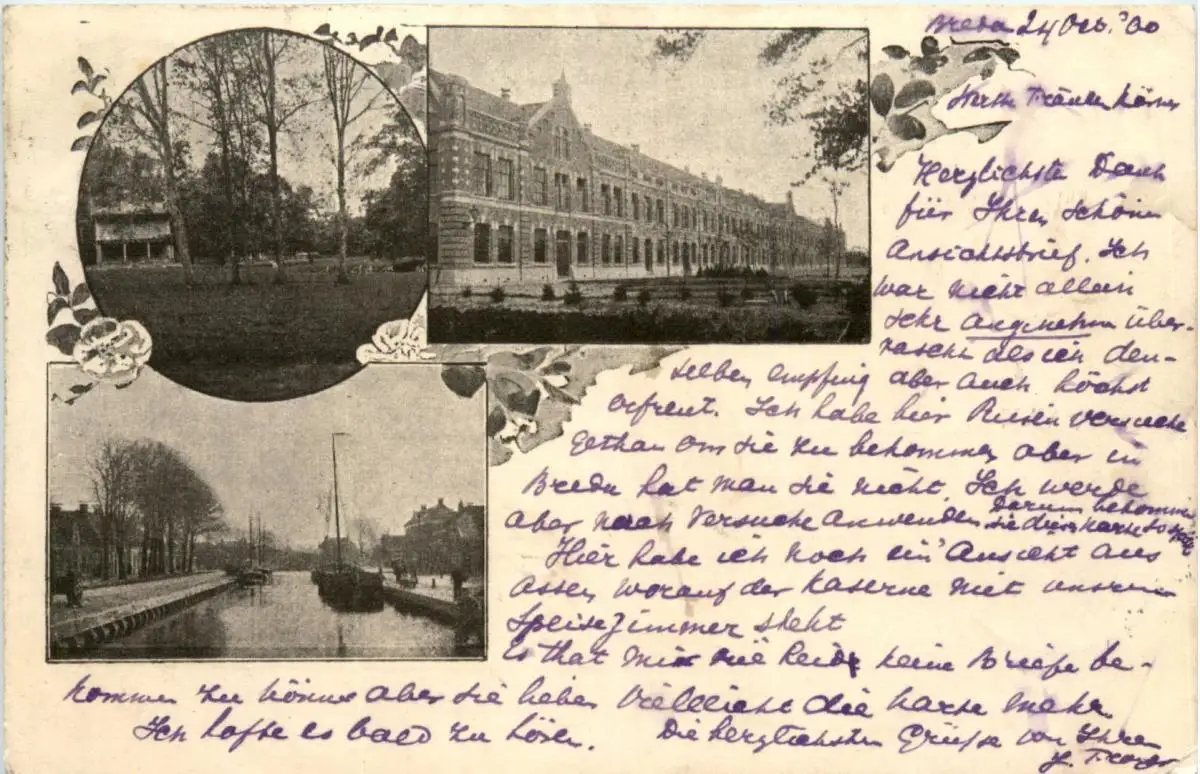 Breda 24 Oct. '00
Herzlichste Dank
für Ihren schönen
Ansichtsbrief. Ich
war nicht allein
sehr angenehm über-
rascht als ich den-
selben empfing aber auch höchst
erfreut. Ich habe hier versuche
gethan om sie zu bekommen aber in
Breda hat man sie nicht. Ich werde
aber noch Versuche anwenden Darum bekommen
sie diese karte so spät
Hier habe ich noch ein Ansicht aus
Assen worauf der Kaserne mit unseren
Speisezimmer steht
Es that mir keine Briefe be-
kommen zu können aber sie lieben Vielleicht die karte mehr.
Ich hoffe es bald zu hören. Die herzlichsten Grüsse von Ihren